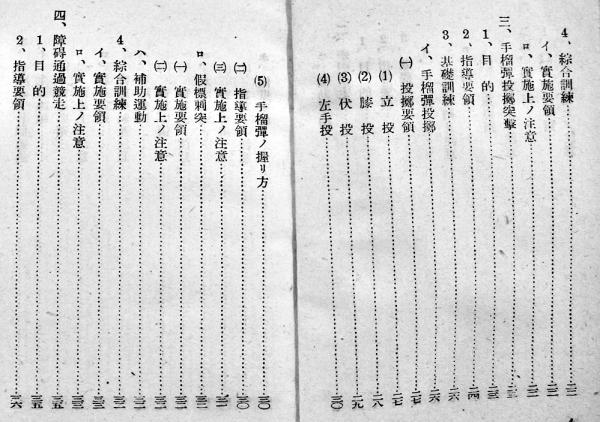 4、綜合訓練
イ、實施要領
ロ、實施上ノ注意
三、手榴彈投擲突擊
1、目的
2、指導要領……二四
3、基礎訓練……二六
イ、手榴彈投擲……二六
㈠投擲要領……二七
(1)立投……二七
(2)膝投……二八
(3)伏投……二九
(4)左手投……三〇
(5)手榴彈ノ握リ方……三〇
㈡指導要領……三〇
㈢實施上ノ注意……三一
ロ、假標刺突
㈠實施要領
㈡實施上ノ注意
ハ、補助運動
4、綜合訓練
イ、實施要領
ロ、實施上ノ注意
四、障碍通過競走……三五
1、目的……三五
2、指導要領……三六